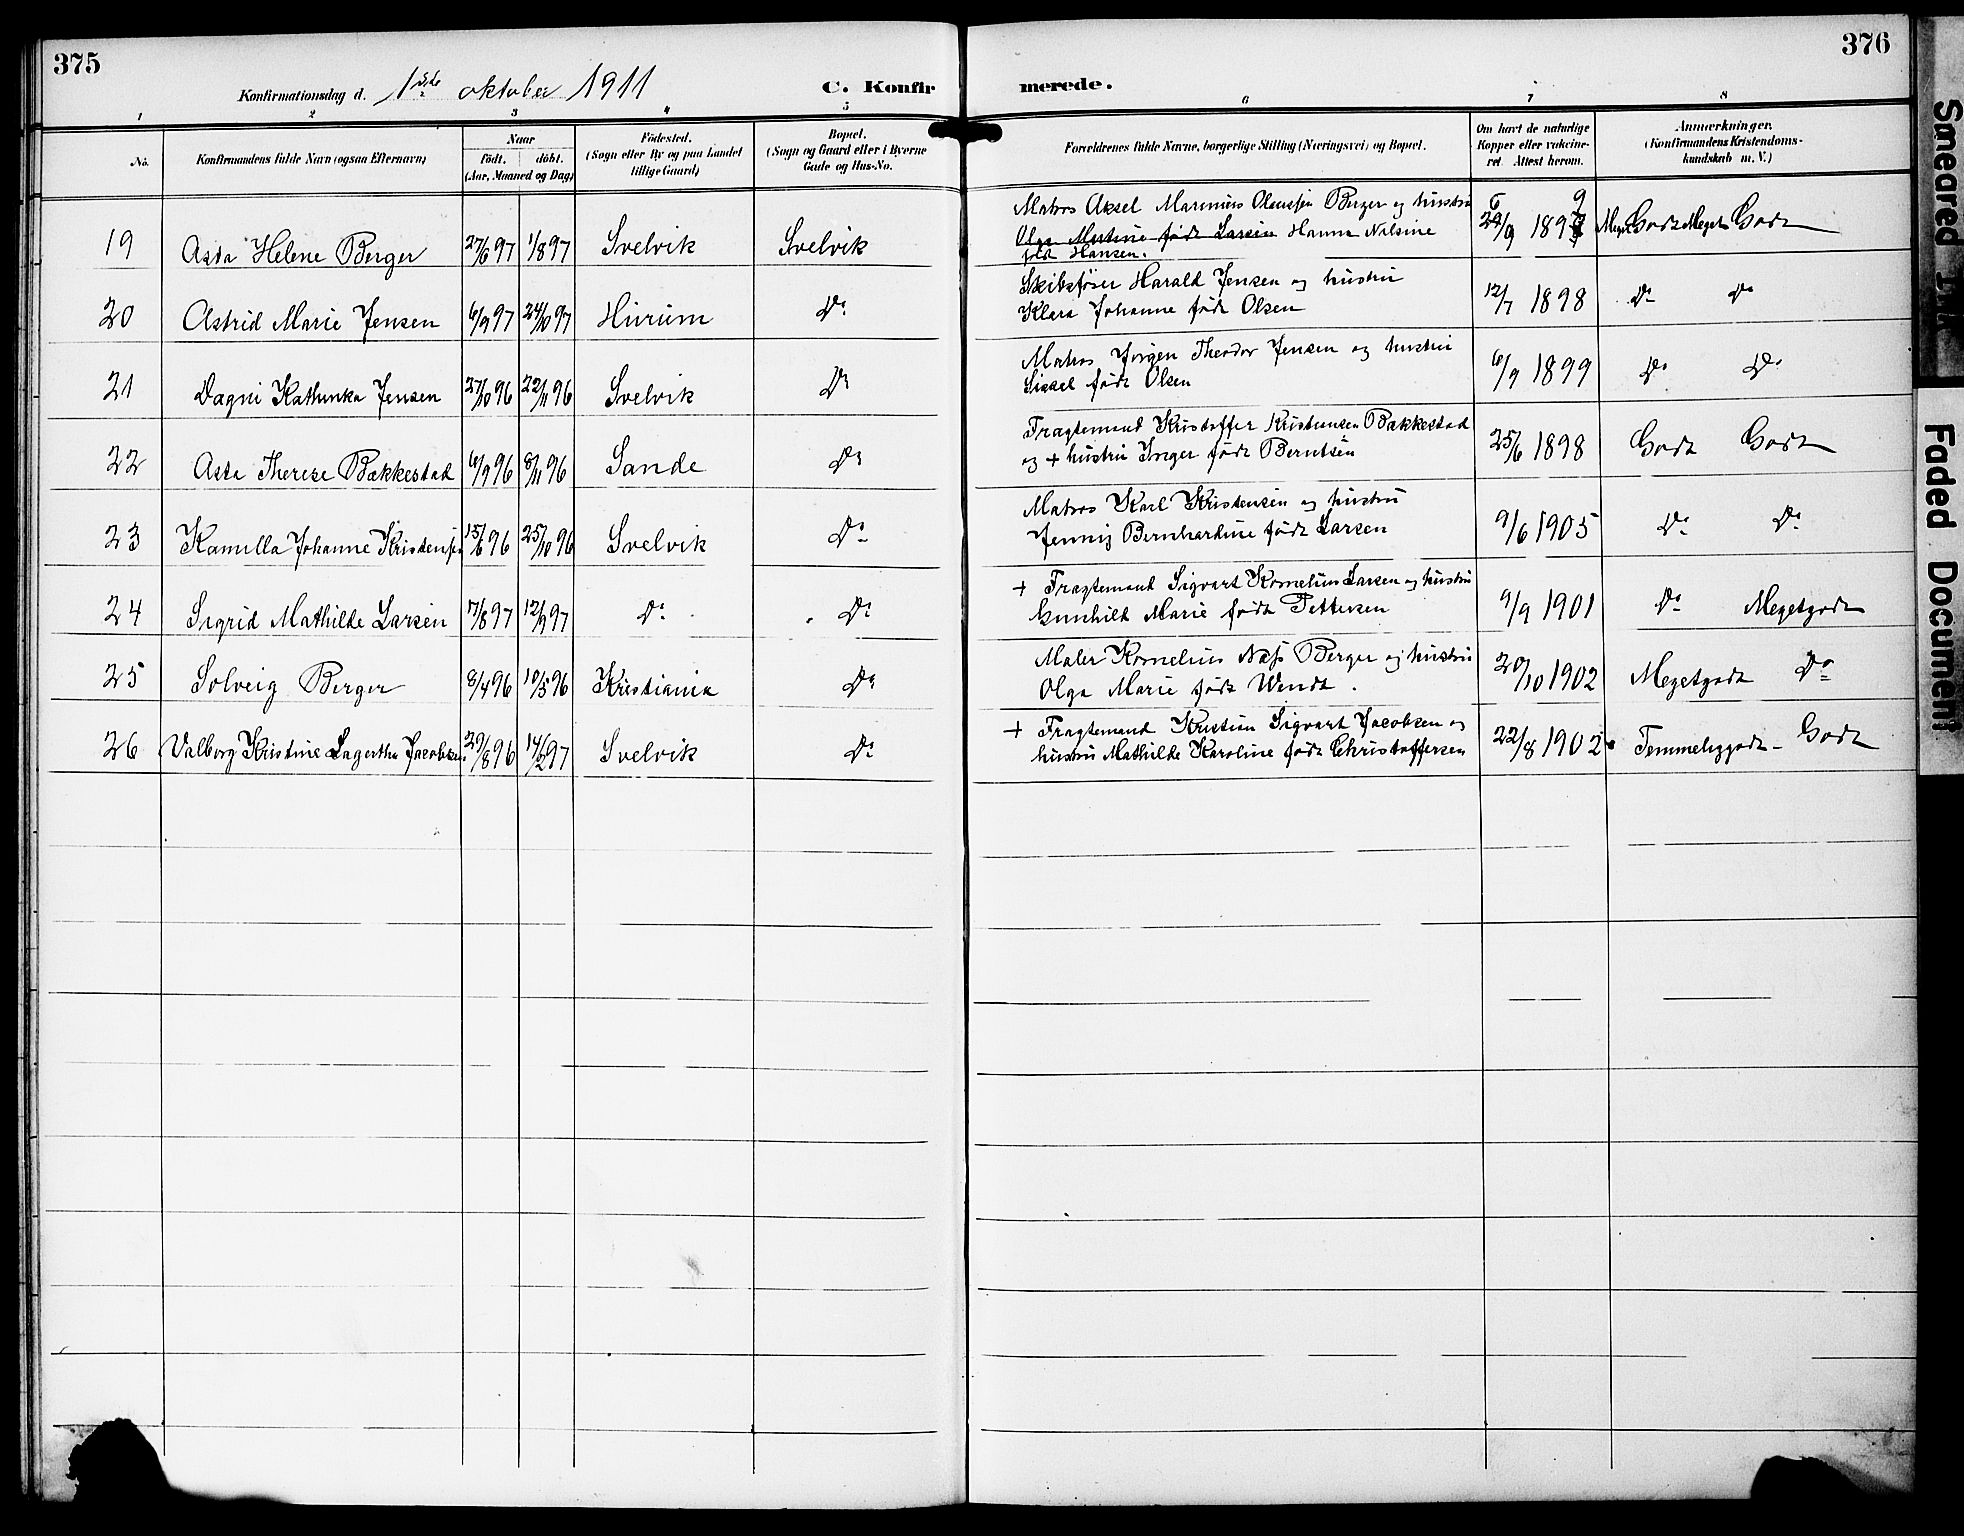 375
376
Konfirmationsdag d. 1ste oktober 1911
C. Konfir
merede.
1 2 3 4 5 6 7 8
No.
Konfirmandens fulde Navn (ogsaa Efternavn)
Naar
født. døbt.
(Aar, Maaned og Dag)
Fødested.
(Sogn eller By og paa Landet
tillige Gaard)
Bopæl.
(Sogn og Gaard eller i Byerne
Gade og Hus-No.
Forældrenes fulde Navne, borgerlige Stilling (Næringsvei) og Bopæl.
Om havt de naturlige
Kopper eller vakcine-
ret. Attest herom.
Anmærkninger.
(Konfirmandens Kristendoms-
kundskab m. V.)
19 Asta Helene Berger 27/6 97 1/8 97 Svelvik Svelvik
Matros Aksel Marinius Olaussen Berger og hustru
Olga Martine født Larsen Hanna Nilsine
født Hansen.
Meget Godt Meget Godt
20 Astrid Marie Jensen 6/9 97 24/10 97 Hurum Do
Skibsfører Harald Jensen og hustru
Klara Johanne født Olsen
12/7 1898 Do Do
21 Dagni Kathinka Jensen 27/10 96 22/11 96 Svelvik Do
Matros Jørgen Theodor Jensen og hustru
Sissel født Olsen
6/9 1899 Do Do
22 Asta Therese Bækkestad 6/9 96 8/11 96 Sande Do
Fragtemand Kristoffer Kristensen Bækkestad
og + hustru Inger født Berntsen
25/6 1898 Godt Godt
23 Kamilla Johanne Kristensen 15/6 96 25/10 96 Svelvik Do
Matros Karl Kristensen og hustru
Jennij Bernhardine født Larsen
9/6 1905 Do Do
24 Sigrid Mathilde Larsen 17/8 97 12/9 97 Do Do
+ Fragtemand Sigvart Kornelius Larsen og hustru
Gunhild Marie født Pettersen
9/9 1901 Do Megetgodt
25 Solveig Berger 8/4 96 10/5 96 Kristiania Do
Maler Kornelius Næss Berger og hustru
Olga Marie født Wendt.
20/10 1902 Megetgodt Do
26 Valborg Kristine Lagertha Jacobsen 29/8 96 14/2 97 Svelvik Do
+ Fragtemand Kristian Sigvart Jacobsen og
hustru Mathilde Karoline født Christoffersen
22/8 1902 Temmeliggodt - Godt
Smeared
Faded Document